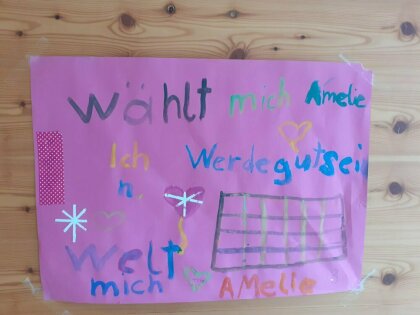 Wählt mich Amelie
Ich Werde gut sein
n.
Welt
mich AMelie